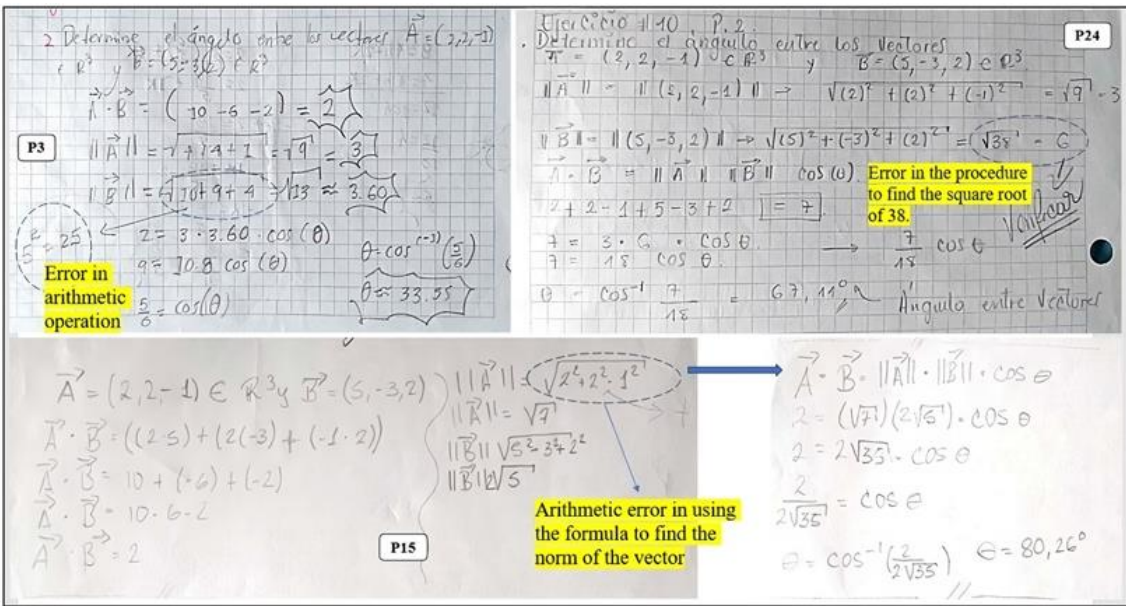 2 Determine el ángulo entre los vectores A = (2,2,-1)
∈ R³ y B = (5,-3,2) ∈ R³
A · B = ( 10 -6 -2 ) = 2
P3
||A|| = √4+4+1 = √9 = 3
||B|| = √10+9+4 = √13 ≈ 3.60
5² = 25
2 = 3 · 3.60 · cos (θ)
9 = 10.8 cos (θ)
5/6 = cos(θ)
θ = cos⁽⁻¹⁾ (5/6)
θ ≈ 33.55
Error in
arithmetic
operation
Ejercicio #10 P. 2
P24
. Determine el ángulo entre los vectores
A = (2, 2, -1) ∈ R³ y B = (5, -3, 2) ∈ R³
||A|| = || (2, 2, -1) || → √(2)² + (2)² + (-1)² = √9 = 3
||B|| = || (5, -3, 2) || → √(5)² + (-3)² + (2)² = √38 = 6
A · B = ||A|| ||B|| cos (θ).
Error in the procedure
to find the square root
of 38.
Verificar
2 + 2 - 1 + 5 - 3 + 2 = 7
7 = 3 · 6 · cos θ.
→ 7/18 cos θ
7 = 18 cos θ.
θ = cos⁻¹ 7/18 = 67,11°
Ángulo entre vectores
A = (2,2,-1) ∈ R³ y B = (5,-3,2)
A · B = ((2·5) + (2(-3) + (-1·2))
A · B = 10 + (-6) + (-2)
A · B = 10-6-2
A · B = 2
P15
||A|| = √2²+2²-1²
||A|| = √7
||B|| √5²-3²+2²
||B|| 2√5
Arithmetic error in using
the formula to find the
norm of the vector
A · B = ||A|| · ||B|| · cos θ
2 = (√7) (2√5) · cos θ
2 = 2√35 · cos θ
2/2√35 = cos θ
θ = cos⁻¹ (2/2√35) θ = 80,26°